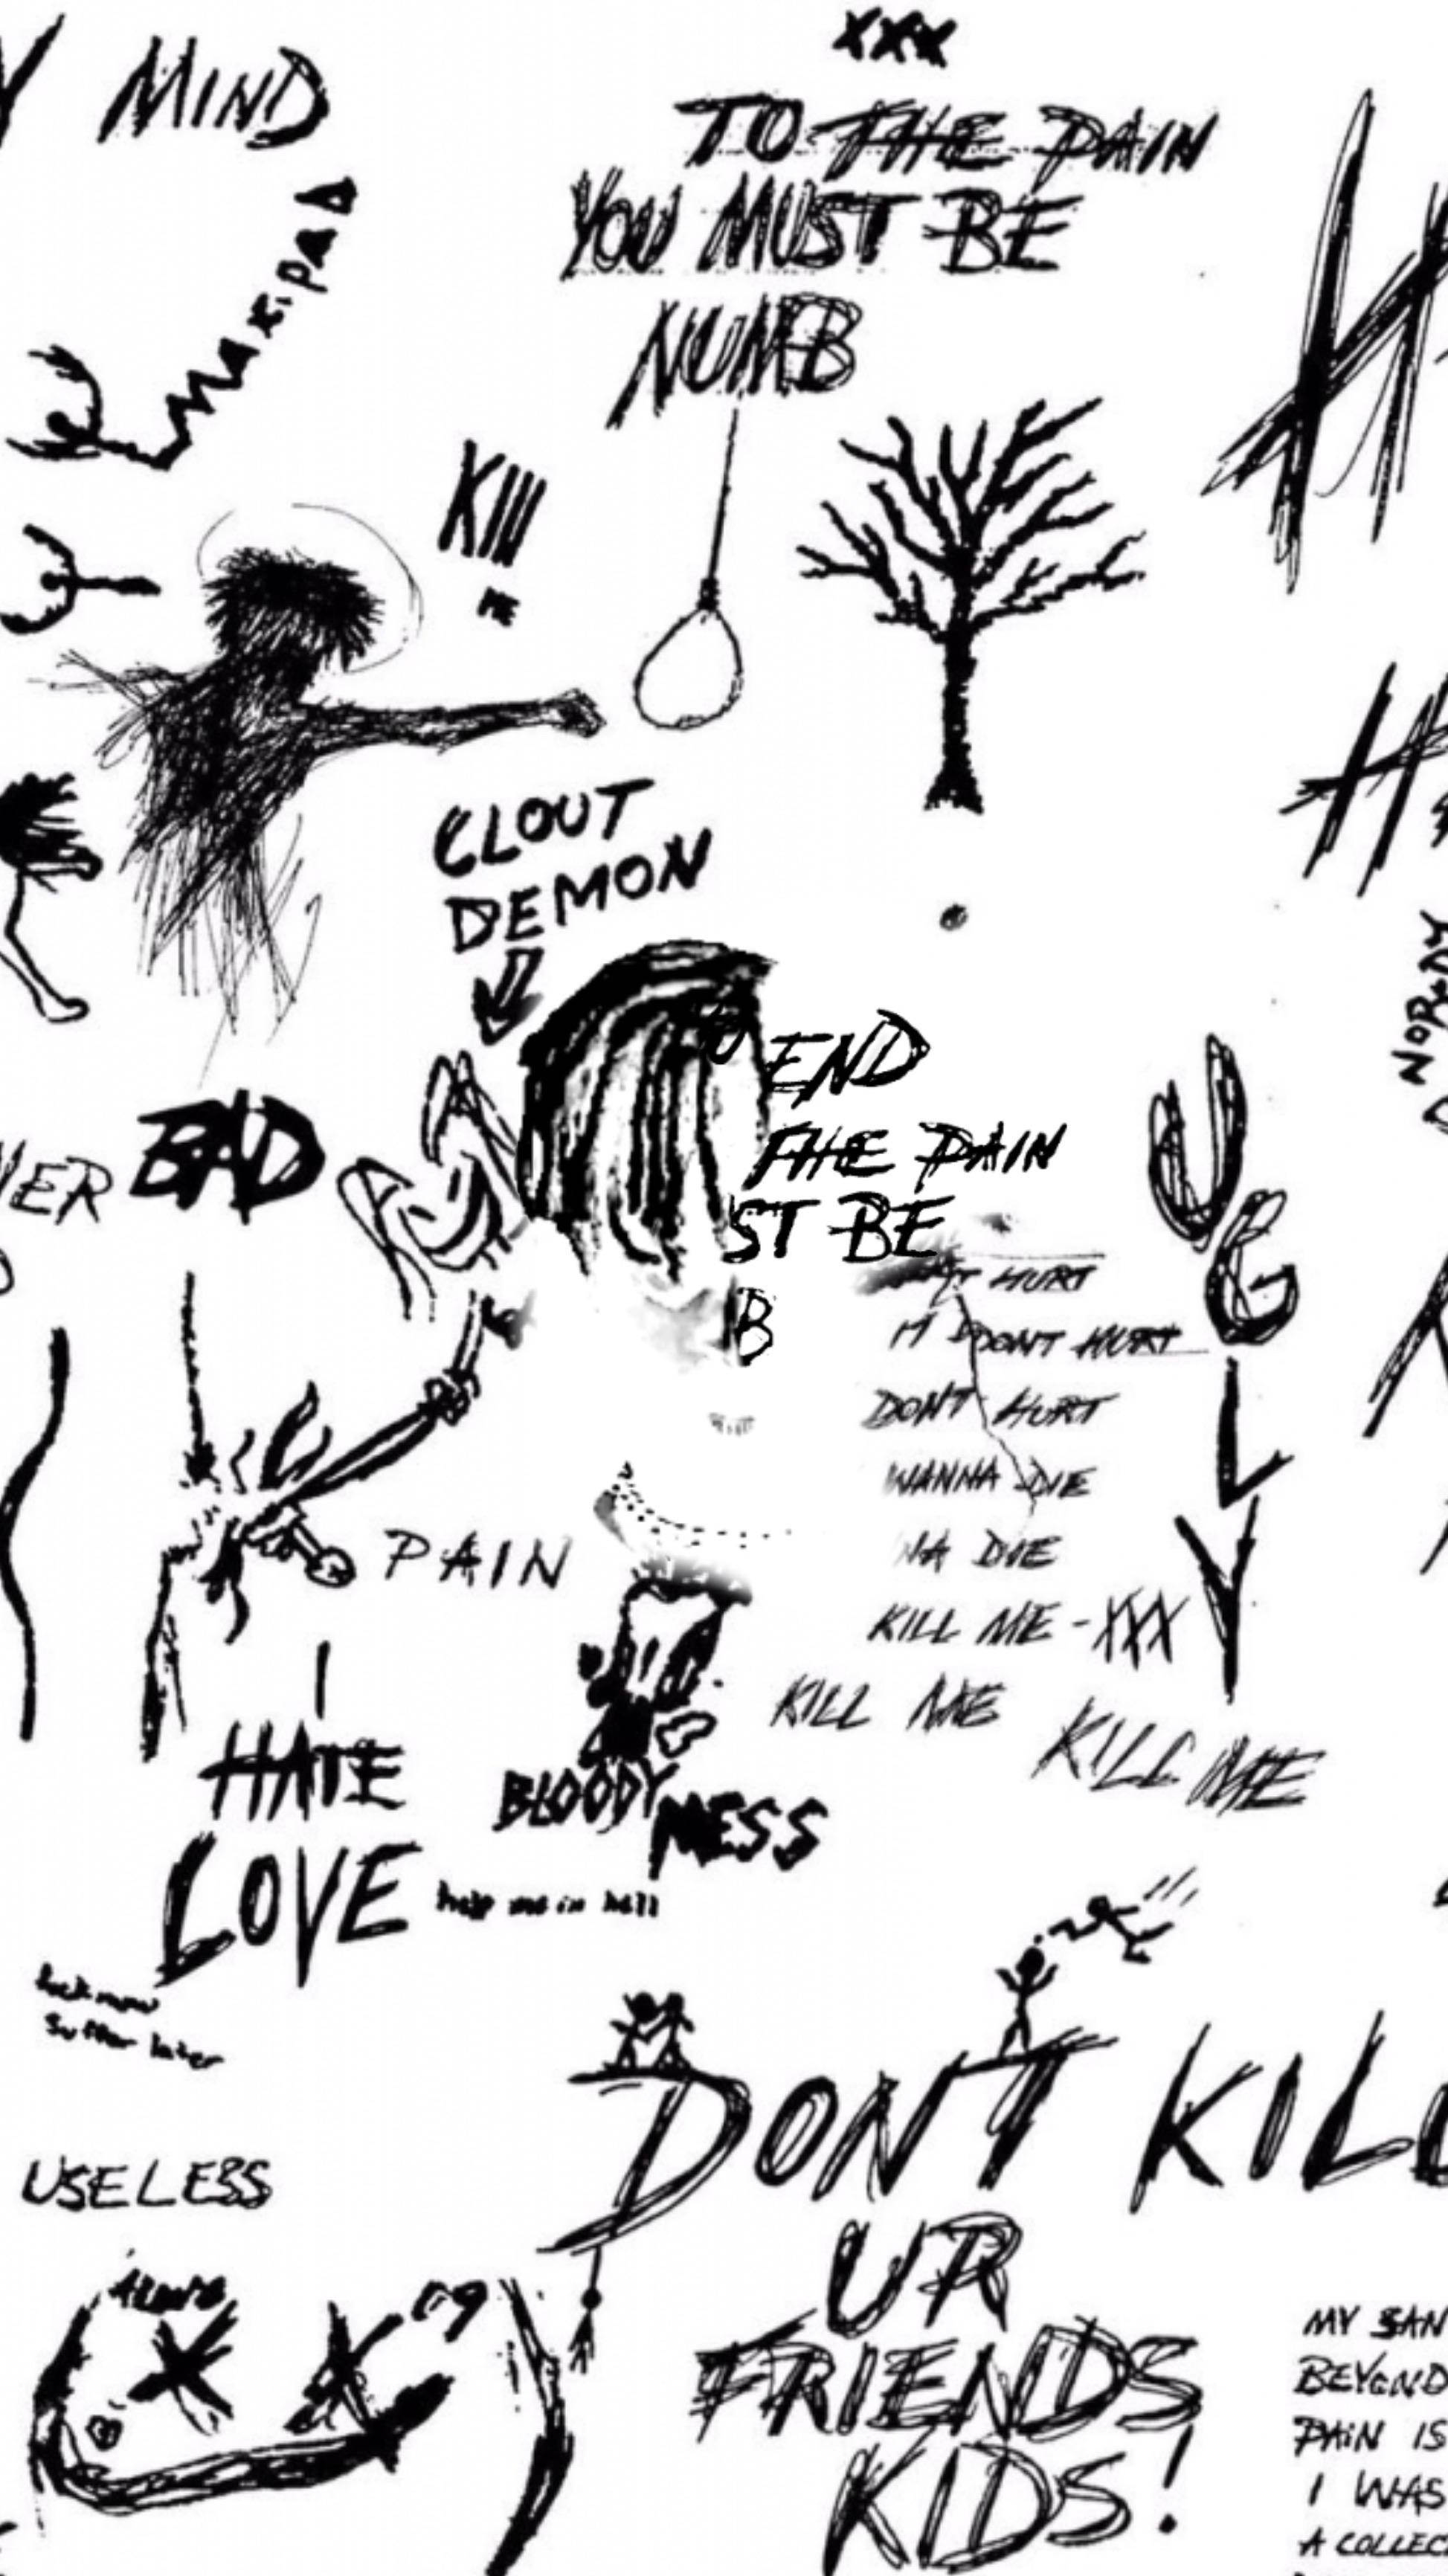 Y MIND
XXX
TO THE PAIN
YOU MUST BE
NUMB
MAXIPAD
KIll
ME
CLOUT
DEMON
END
THE PAIN
ST BE
B
BAD
NOBODY
UGLY
HURT
DONT HURT
DONT HURT
WANNA DIE
NA DIE
KILL ME -XXX
KILL ME
KILL ME
PAIN
I
HATE
LOVE
BLOODY
MESS
help me in hell
suffer later
DONT KILL
UR
FRIENDS
KIDS!
USELESS
MY
BEYOND
PAIN IS
I WAS
A COLLEC